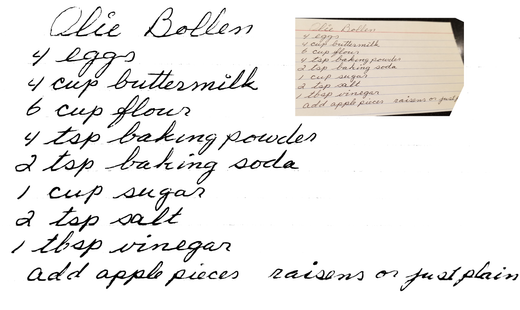 Olie Bollen
4 eggs
4 cup buttermilk
6 cup flour
4 tsp baking powder
2 tsp baking soda
1 cup sugar
2 tsp salt
1 tbsp vinegar
add apple pieces raisens or just plain
Olie Bollen
4 eggs
4 cup buttermilk
6 cup flour
4 tsp baking powder
2 tsp baking soda
1 cup sugar
2 tsp salt
1 tbsp vinegar
add apple pieces raisens or just